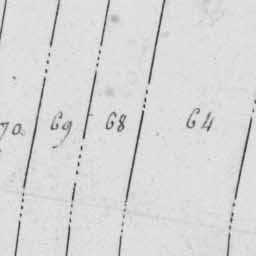 70 69 68 64